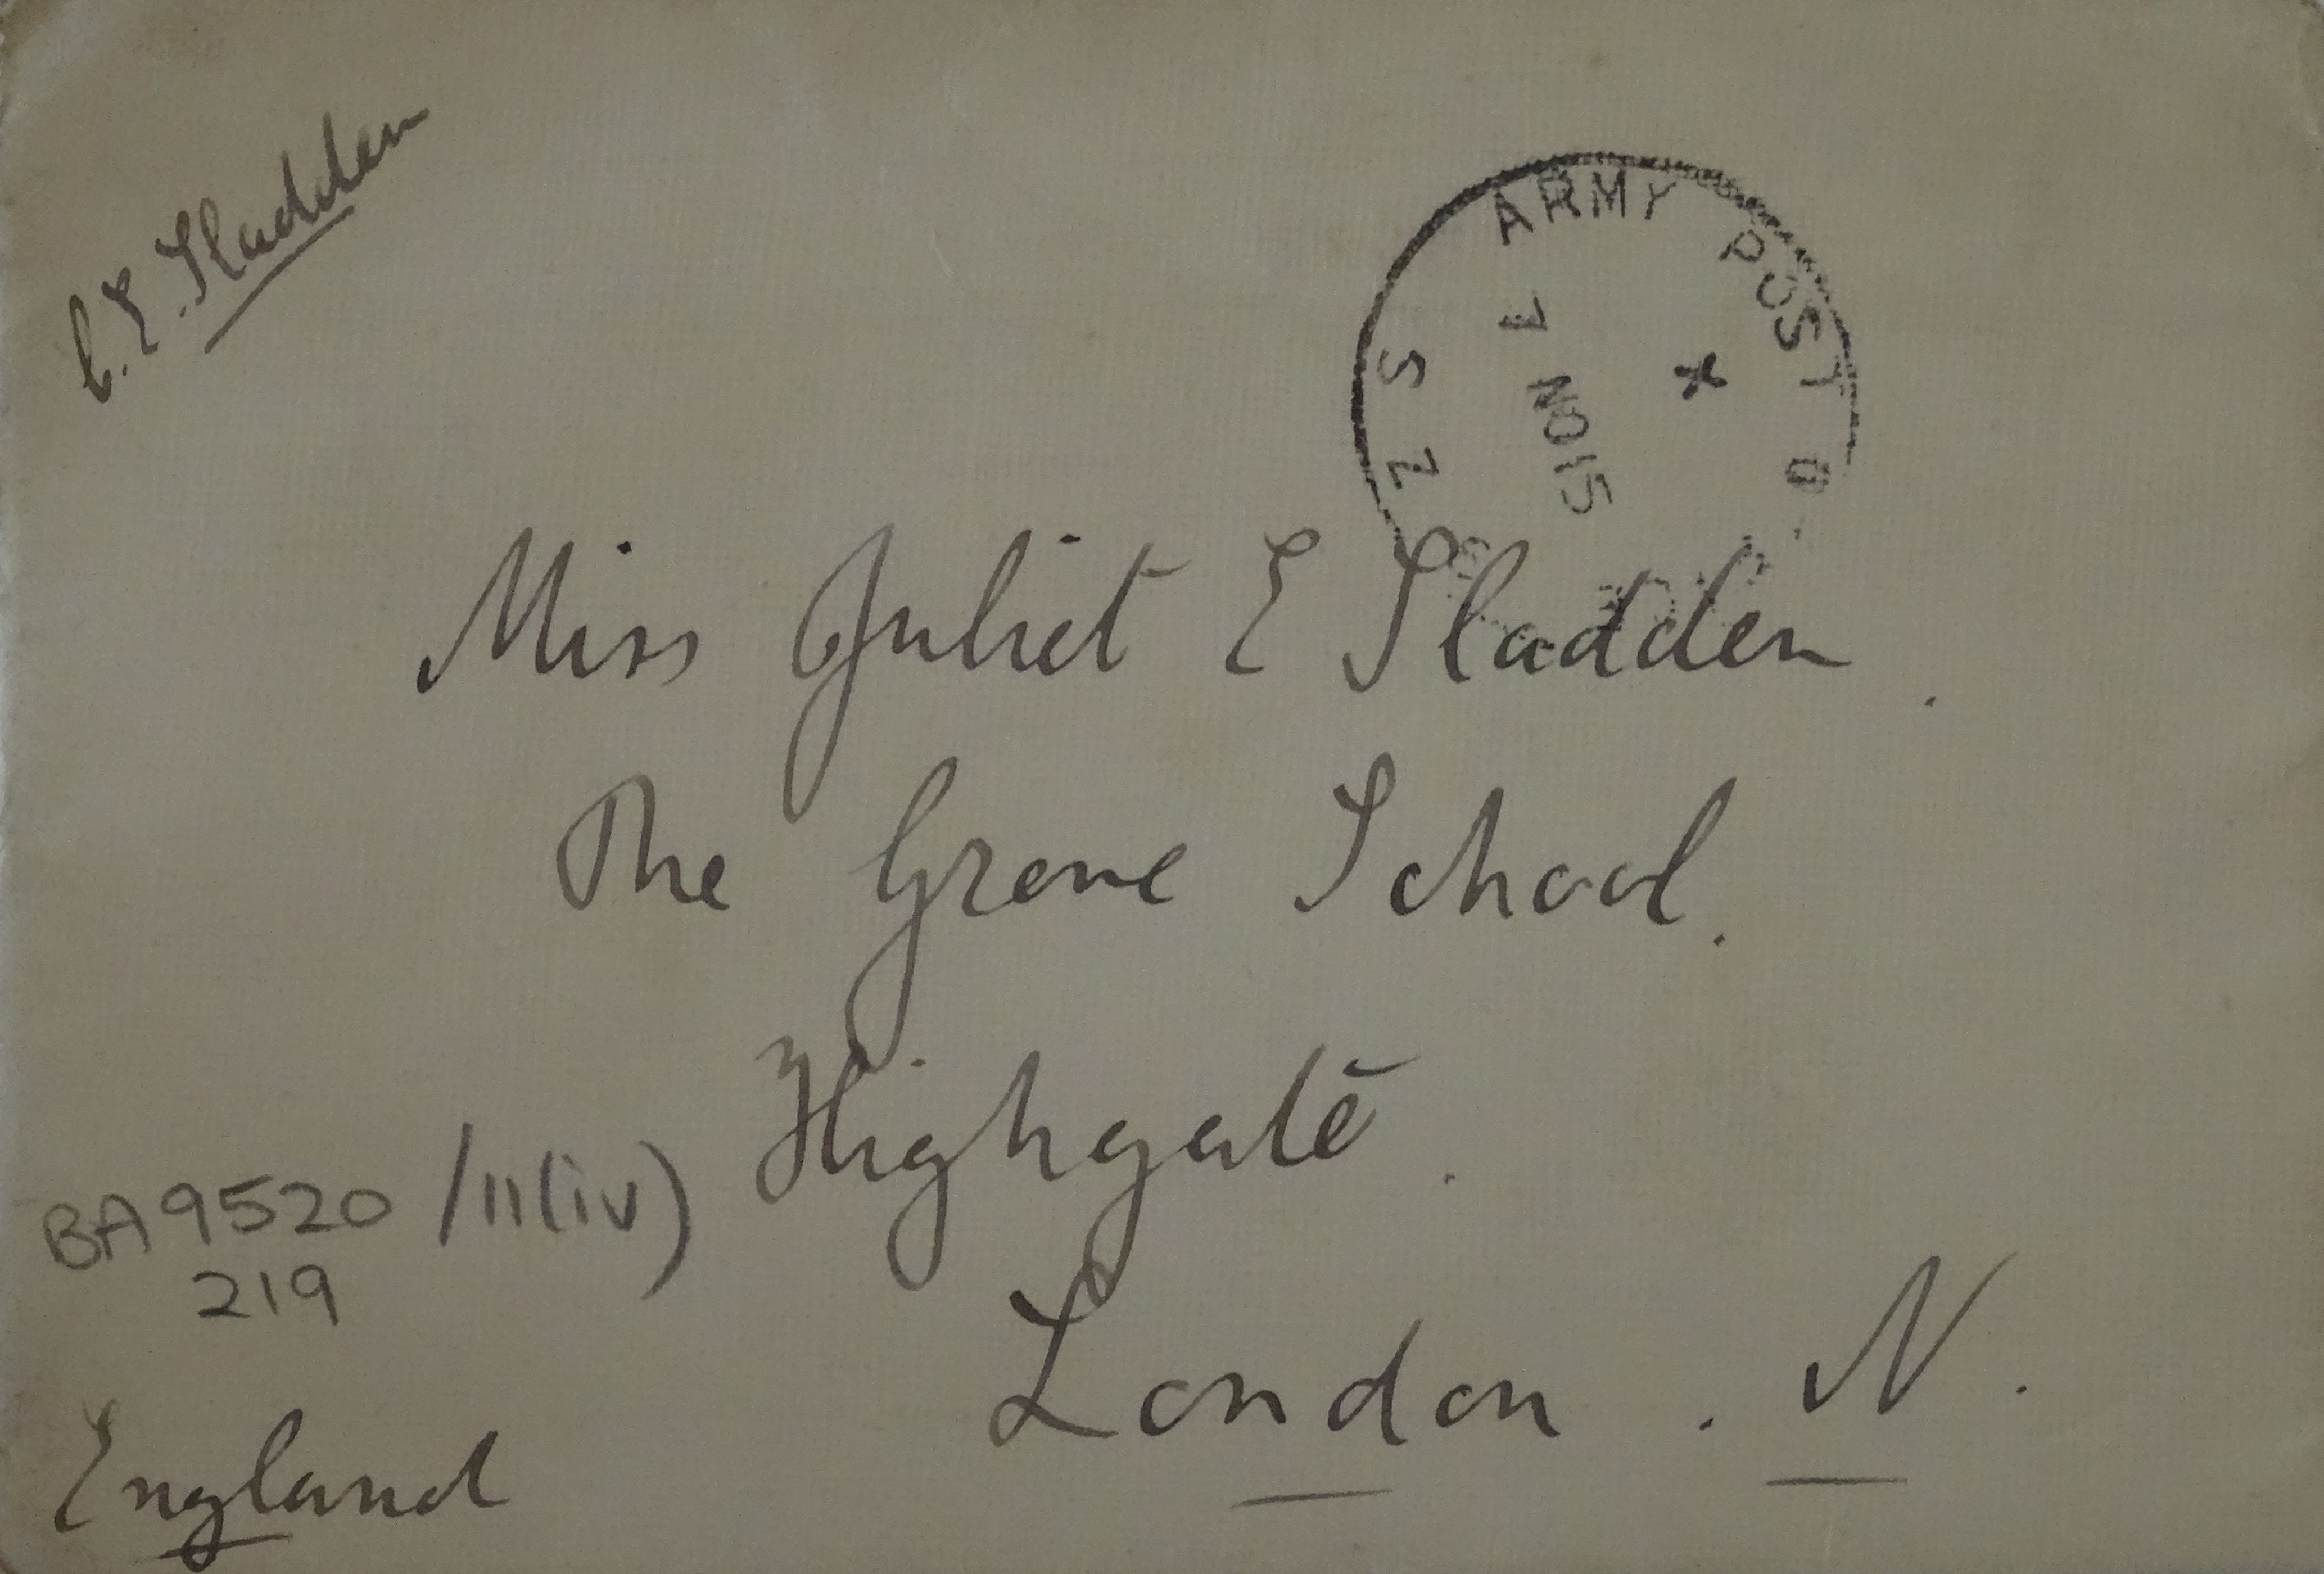 C.E. Sladden
ARMY POST O.
S Z
X
7 NO 15
Miss Juliet E Sladden.
The Grove School.
Highgate.
London. N.
BA9520/11(iv)
219
England